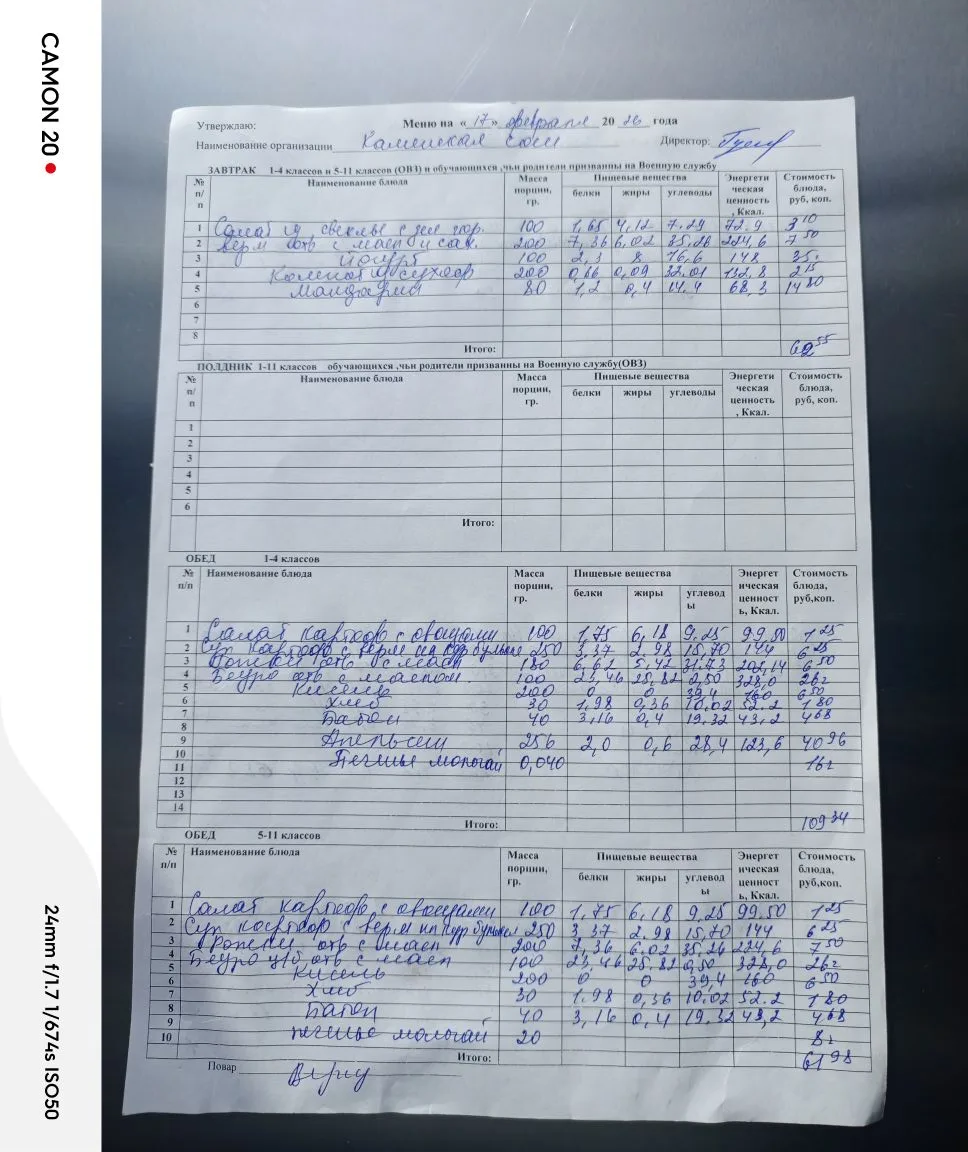 CAMON 20
24mm f/1.7 1/674s ISO50
Утверждаю: Меню на «17» февраля 2026 года
Наименование организации Каменская сош Директор:
ЗАВТРАК 1-4 классов и 5-11 классов (ОВЗ) и обучающихся ,чьи родители призванны на Военную службу
№ п/п Наименование блюда Масса порции, гр. Пищевые вещества белки жиры углеводы Энергети ческая ценность , Ккал. Стоимость блюда, руб, коп.
1 Салат из свеклы с зел гор. 100 1,65 4,12 7.29 72.9 3 10
2 Верм отв с масл и сах. 200 7,36 6,02 35.26 224,6 7 50
3 Йогурт 100 2,3 8 16,6 148 35.
4 Компот из сухофр 200 0,66 0,09 32,01 132,8 2 15
5 Мандарин 80 1,2 0,4 14.4 68,3 14 80
6
7
8
Итого: 62 55
ПОЛДНИК 1-11 классов обучающихся ,чьи родители призванны на Военную службу(ОВЗ)
№ п/п Наименование блюда Масса порции, гр. Пищевые вещества белки жиры углеводы Энергети ческая ценность , Ккал. Стоимость блюда, руб, коп.
1
2
3
4
5
6
Итого:
ОБЕД 1-4 классов
№ п/п Наименование блюда Масса порции, гр. Пищевые вещества белки жиры углевод ы Энергет ическая ценност ь, Ккал. Стоимость блюда, руб,коп.
1 Салат картоф с овощами 100 1,75 6,18 9.25 99,50 1 25
2 Суп картоф с верм на кур бульоне 250 3,37 2,98 15,70 144 6 25
3 отв с масл 180 6,62 5,42 31.73 202,14 6 50
4 отв с маслом. 100 23,46 25,82 0,50 328,0 26г
5 Кисель 200 0 0 39,4 160 6 50
6 Хлеб 30 1,98 0,36 10.02 52.2 1 80
7 Батон 40 3,16 0,4 19.32 43,2 4 68
8
9 Апельсин 256 2,0 0,6 28,4 123,6 40 96
10
11 Печенье молочай 0,040 16г
12
13
14
Итого: 109 34
ОБЕД 5-11 классов
№ п/п Наименование блюда Масса порции, гр. Пищевые вещества белки жиры углевод ы Энергет ическая ценност ь, Ккал. Стоимость блюда, руб,коп.
1 Салат картоф с овощами 100 1,75 6,18 9,25 99.50 1 25
2 Суп картоф с верм на кур бульон 250 3,37 2,98 15,70 144 6 25
3 отв с масл 200 7,36 6.02 35,26 224,6 7 50
4 отв с масл 100 23,46 25.82 0,50 328,0 26г
5 Кисель 200 0 0 39,4 160 6 50
6
7 Хлеб 30 1.98 0,36 10,02 52.2 1 80
8 Батон 40 3,16 0,4 19.32 43,2 4 68
9 печенье молочай 20 8г
10
Итого: 61 98
Повар